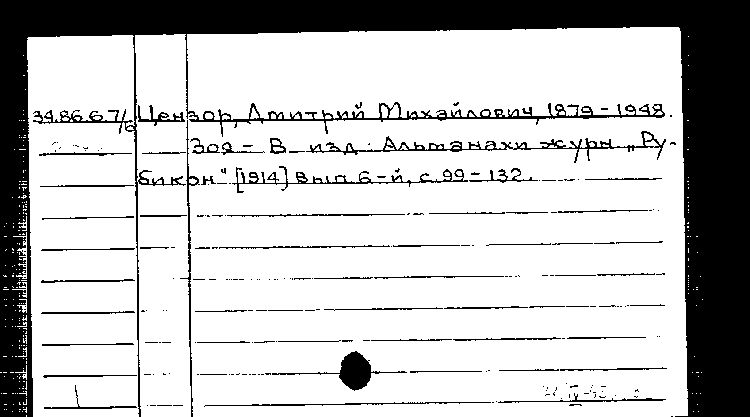 34.86.6.7/6 Цензор, Дмитрий Михайлович, 1879-1948.
Зоя - В изд: Альманахи журн „Ру-
бикон" [1914] вып 6-й, с. 99-132.